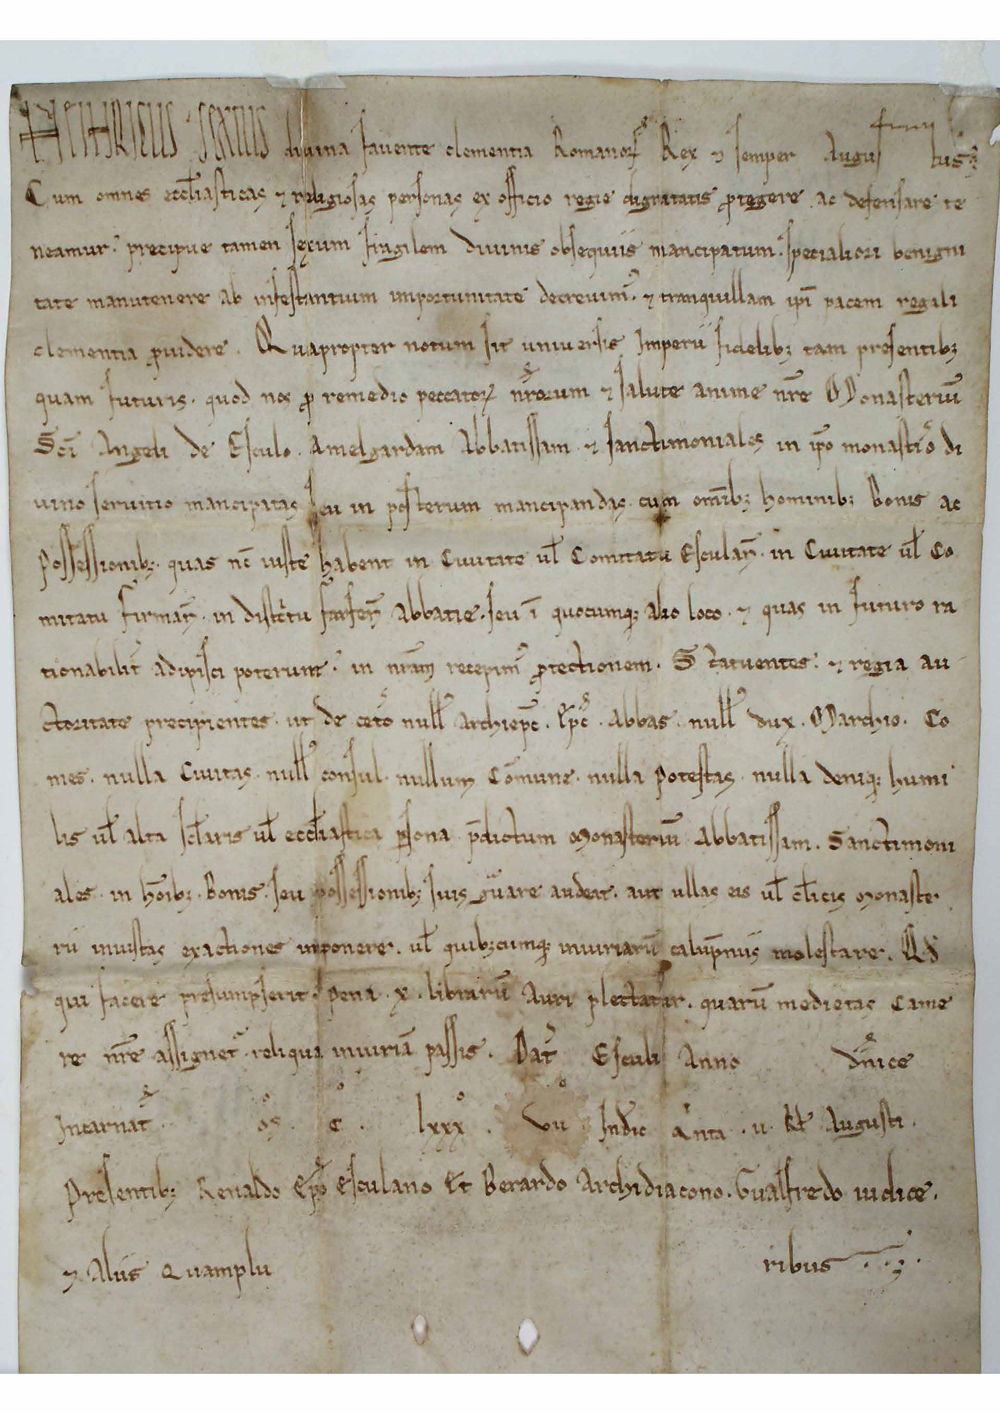 HEINRICUS · SEXTUS divina favente clementia Romanoꝝ Rex ⁊ semper Augus tus.
Cum omnes eccl̅iasticas ⁊ religiosas personas ex officio regie dignitatis ꝓtegere ac defensare te
neamur. precipue tamen sexum fragilem divinis obsequiis mancipatum. speciali ori benigni
tate manutenere ab infestantium importunitate decrevim᷒. ⁊ tranquillam ip̅i pacem regali
clementia ꝓvidere. Quapropter notum sit universis Imperii fidelibꝫ tam presentibꝫ
quam futuris. quod nos ꝓ remedio peccatoꝝ nr̅orum ⁊ salute anime nr̅e Monasteriu̅
Sc̅i Angeli de Esculo. Amelgardam Abbatissam ⁊ sanctimoniales in ip̅o monast̅io di
vino servitio mancipatas seu in posterum mancipandas cum omnibꝫ hominibꝫ Bonis ac
possessionibꝫ. quas nc̅ iuste habent in Civitate vl̅ Comitatu Esculan̅. in Civitate vl̅ Co
mitatu firman̅. in distc̅tu farfen̅ Abbatie. seu i̅ quocumqꝫ alio loco. ⁊ quas in futuro ra
tionabilit̅ adipisci poterunt. in nr̅am recepim᷒ ꝓtectionem. Statuentes. ⁊ regia au-
ctoritate precipientes. ut de cet̅o null᷒ archiepc̅. Epc̅. Abbas. null᷒ dux. Marchio. Co
mes. nulla Civitas. null᷒ consul. nullum Co̅mune. nulla potestas. nulla deniqꝫ humi
lis vl̅ alta sc̅laris vl̅ eccl̅iastica ꝑsona p̅dictum Monasteriu̅ Abbatissam. Sanctimoni
ales. in ho̅ibꝫ. Bonis. seu possessionibꝫ suis gͣvare audeat. aut ullas eis vl̅ cl̅icis Monaste
rii iniustas exactiones imponere. vl̅ quibꝫcumqꝫ iniuriaru̅ calu̅pniis molestare. Qd̅
qui facere presumpserit. pena. x. libraru̅ Auri plectatur. quaru̅ medietas Came
re nr̅e assignet᷑. reliqua iniuria̅ passis. Dat̅ Esculi Anno dn̅ice
Incarnat̅. M̊. C̊. lxxx̊. vii̊ Indic̅ Qͥnta. v. Kl̅ Augusti.
Presentibꝫ Renaldo Ep̅o Esculano Et Berardo Archidiacono. Gualfredo iudice.
⁊ Aliis Quamplu ribus